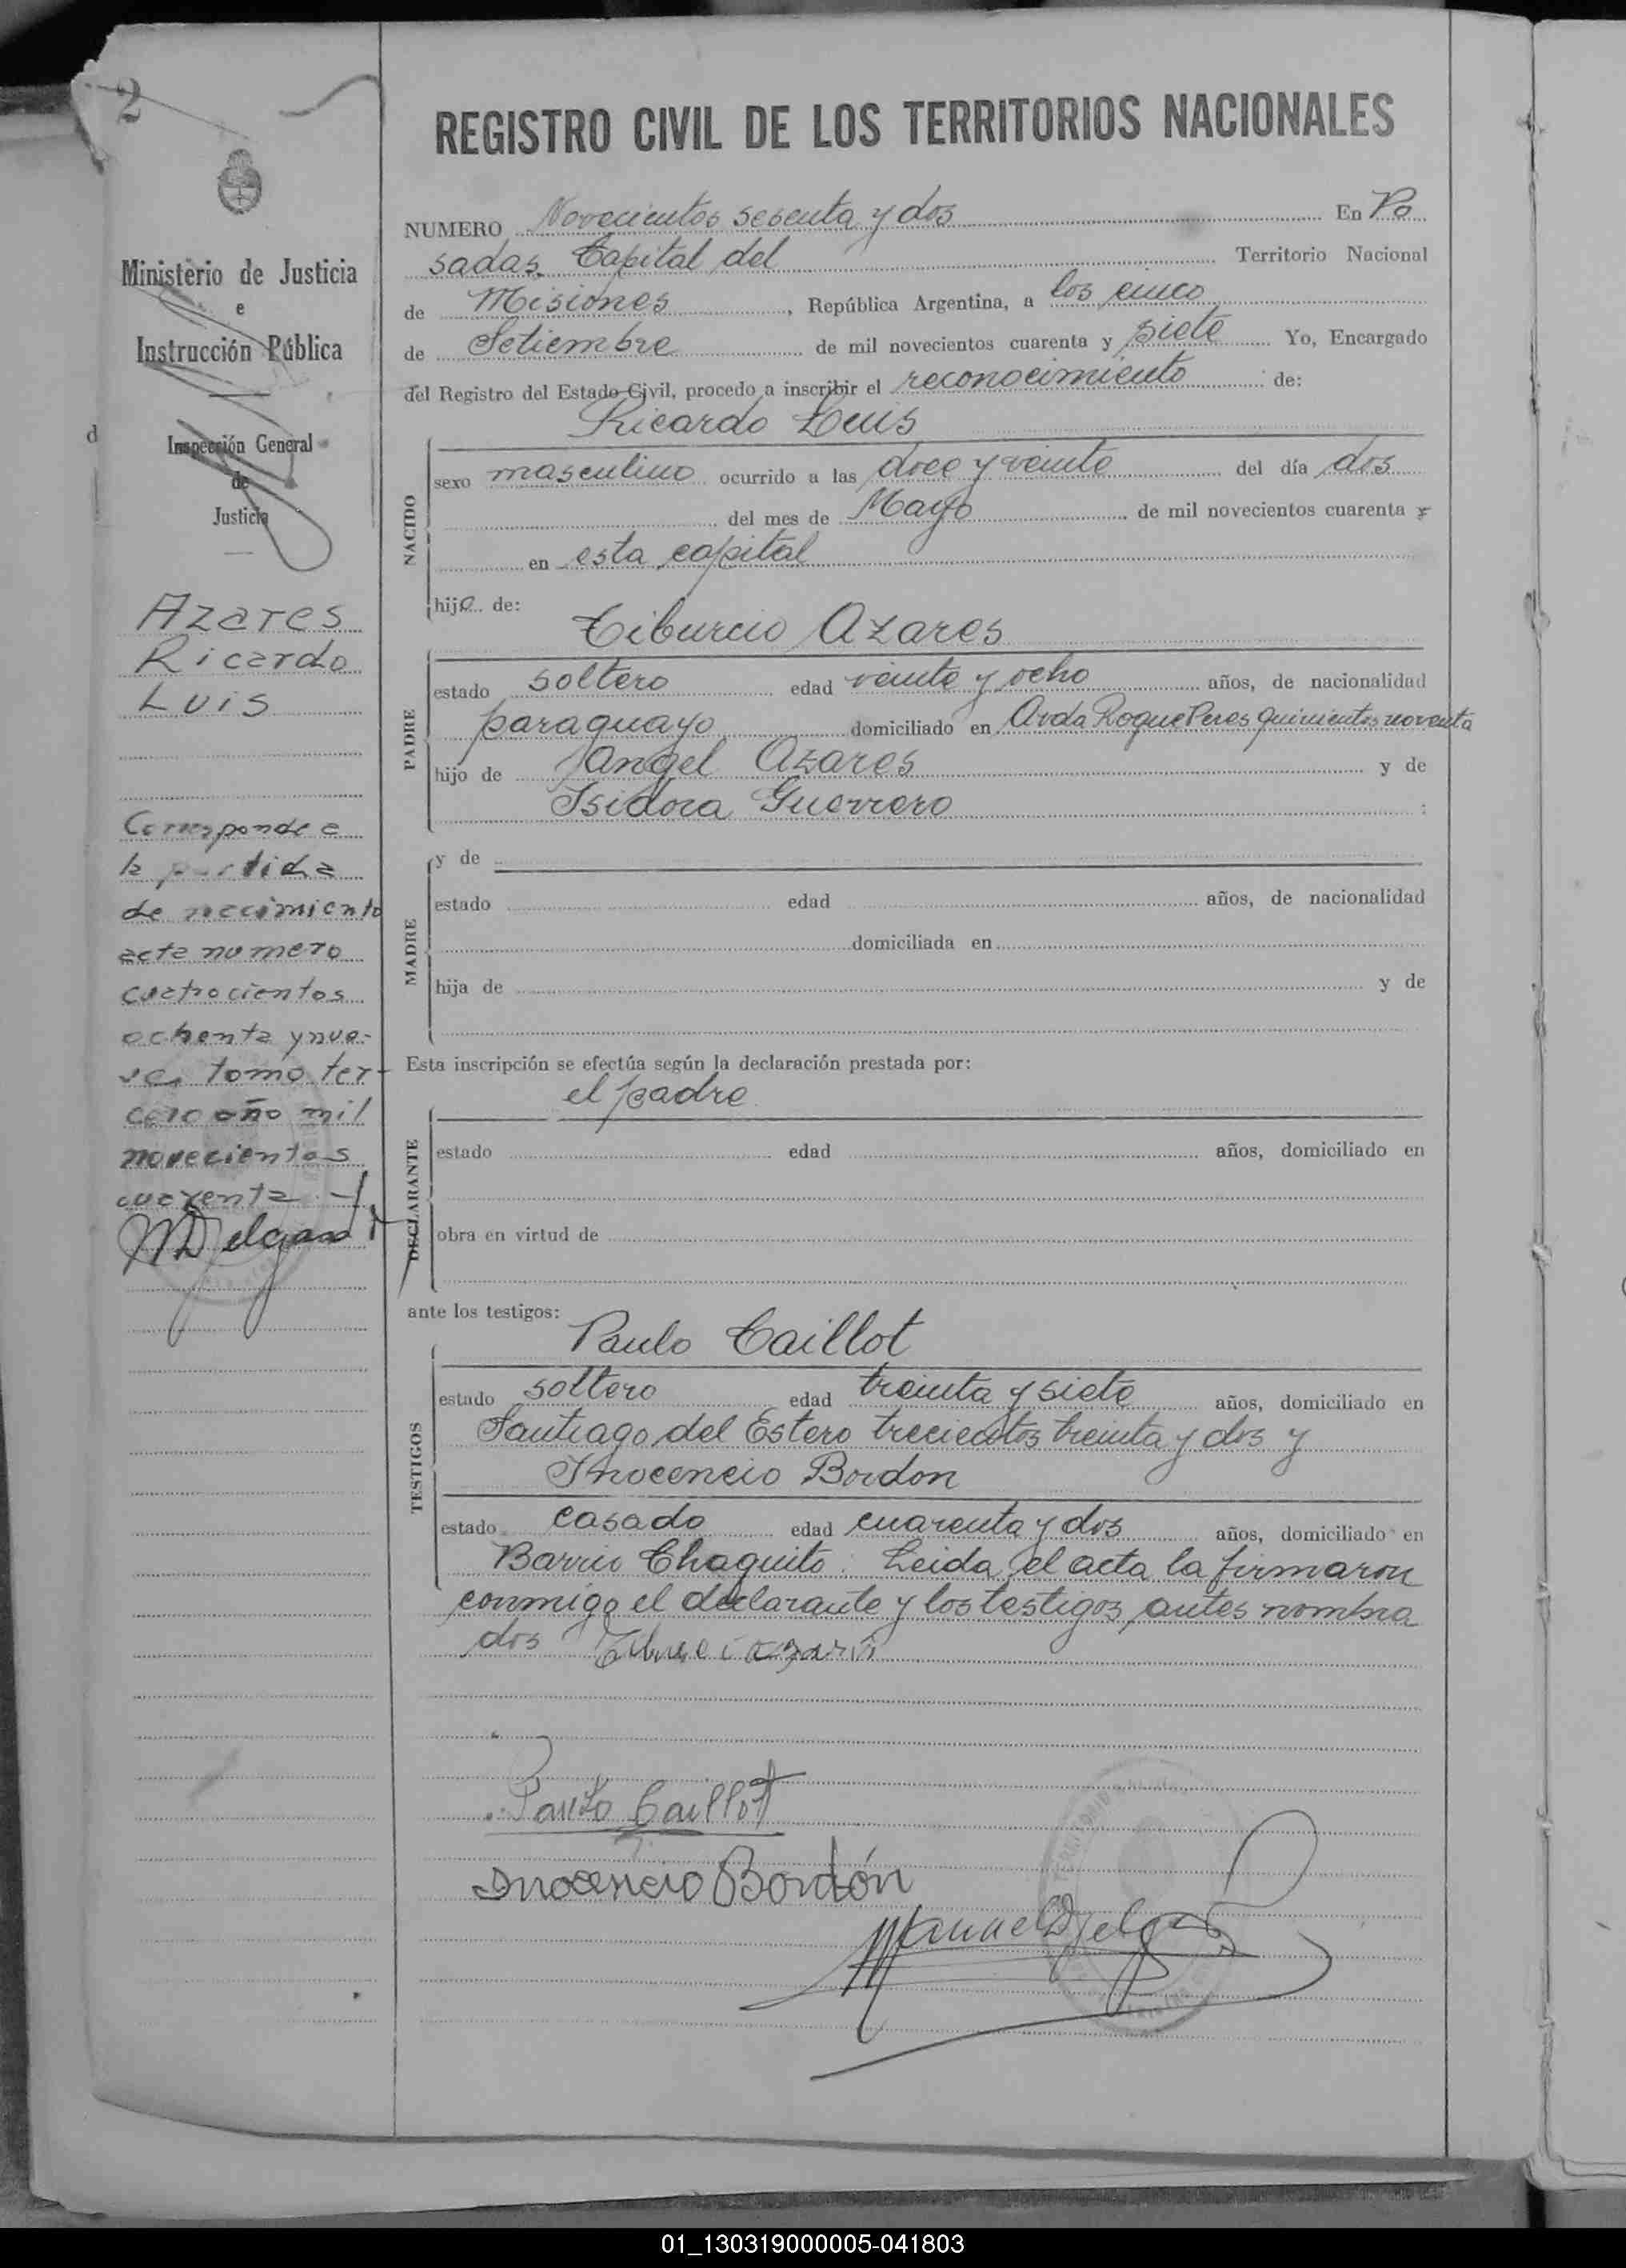 2
REGISTRO CIVIL DE LOS TERRITORIOS NACIONALES
Ministerio de Justicia
e
Instrucción Pública
Inspección General
de
Justicia
d
Azares
Ricardo
Luis
Corresponde a
la partida
de nacimiento
acta numero
cuatrocientos
ochenta y nue-
ve, tomo ter-
cero año mil
novecientos
cuarenta.-
MDelgado
NUMERO Novecientos sesenta y dos En Po
sadas, Capital del Territorio Nacional
de Misiones, República Argentina, a los cinco
de Setiembre de mil novecientos cuarenta y siete Yo, Encargado
del Registro del Estado Civil, procedo a inscribir el reconocimiento de:
Ricardo Luis
NACIDO
sexo masculino ocurrido a las doce y veinte del día dos
del mes de Mayo de mil novecientos cuarenta y
en esta capital
hijo de:
Tiburcio Azares
PADRE
estado soltero edad veinte y ocho años, de nacionalidad
paraguayo domiciliado en Avda Roque Peres quinientos noventa
hijo de Angel Azares y de
Isidora Guerrero :
MADRE
y de
estado edad años, de nacionalidad
domiciliada en
hija de y de
Esta inscripción se efectúa según la declaración prestada por:
el padre
DECLARANTE
estado edad años, domiciliado en
obra en virtud de
ante los testigos:
Paulo Caillot
TESTIGOS
estado soltero edad treinta y siete años, domiciliado en
Santiago del Estero trecientos treinta y dos y
Inocencio Bordon
estado casado edad cuarenta y dos años, domiciliado en
Barrio Chaquito. Leida el acta la firmaron
conmigo el declarante y los testigos antes nombra
dos
Paulo Caillot
Inocencio Bordón
Manuel Delgado
01_130319000005-041803